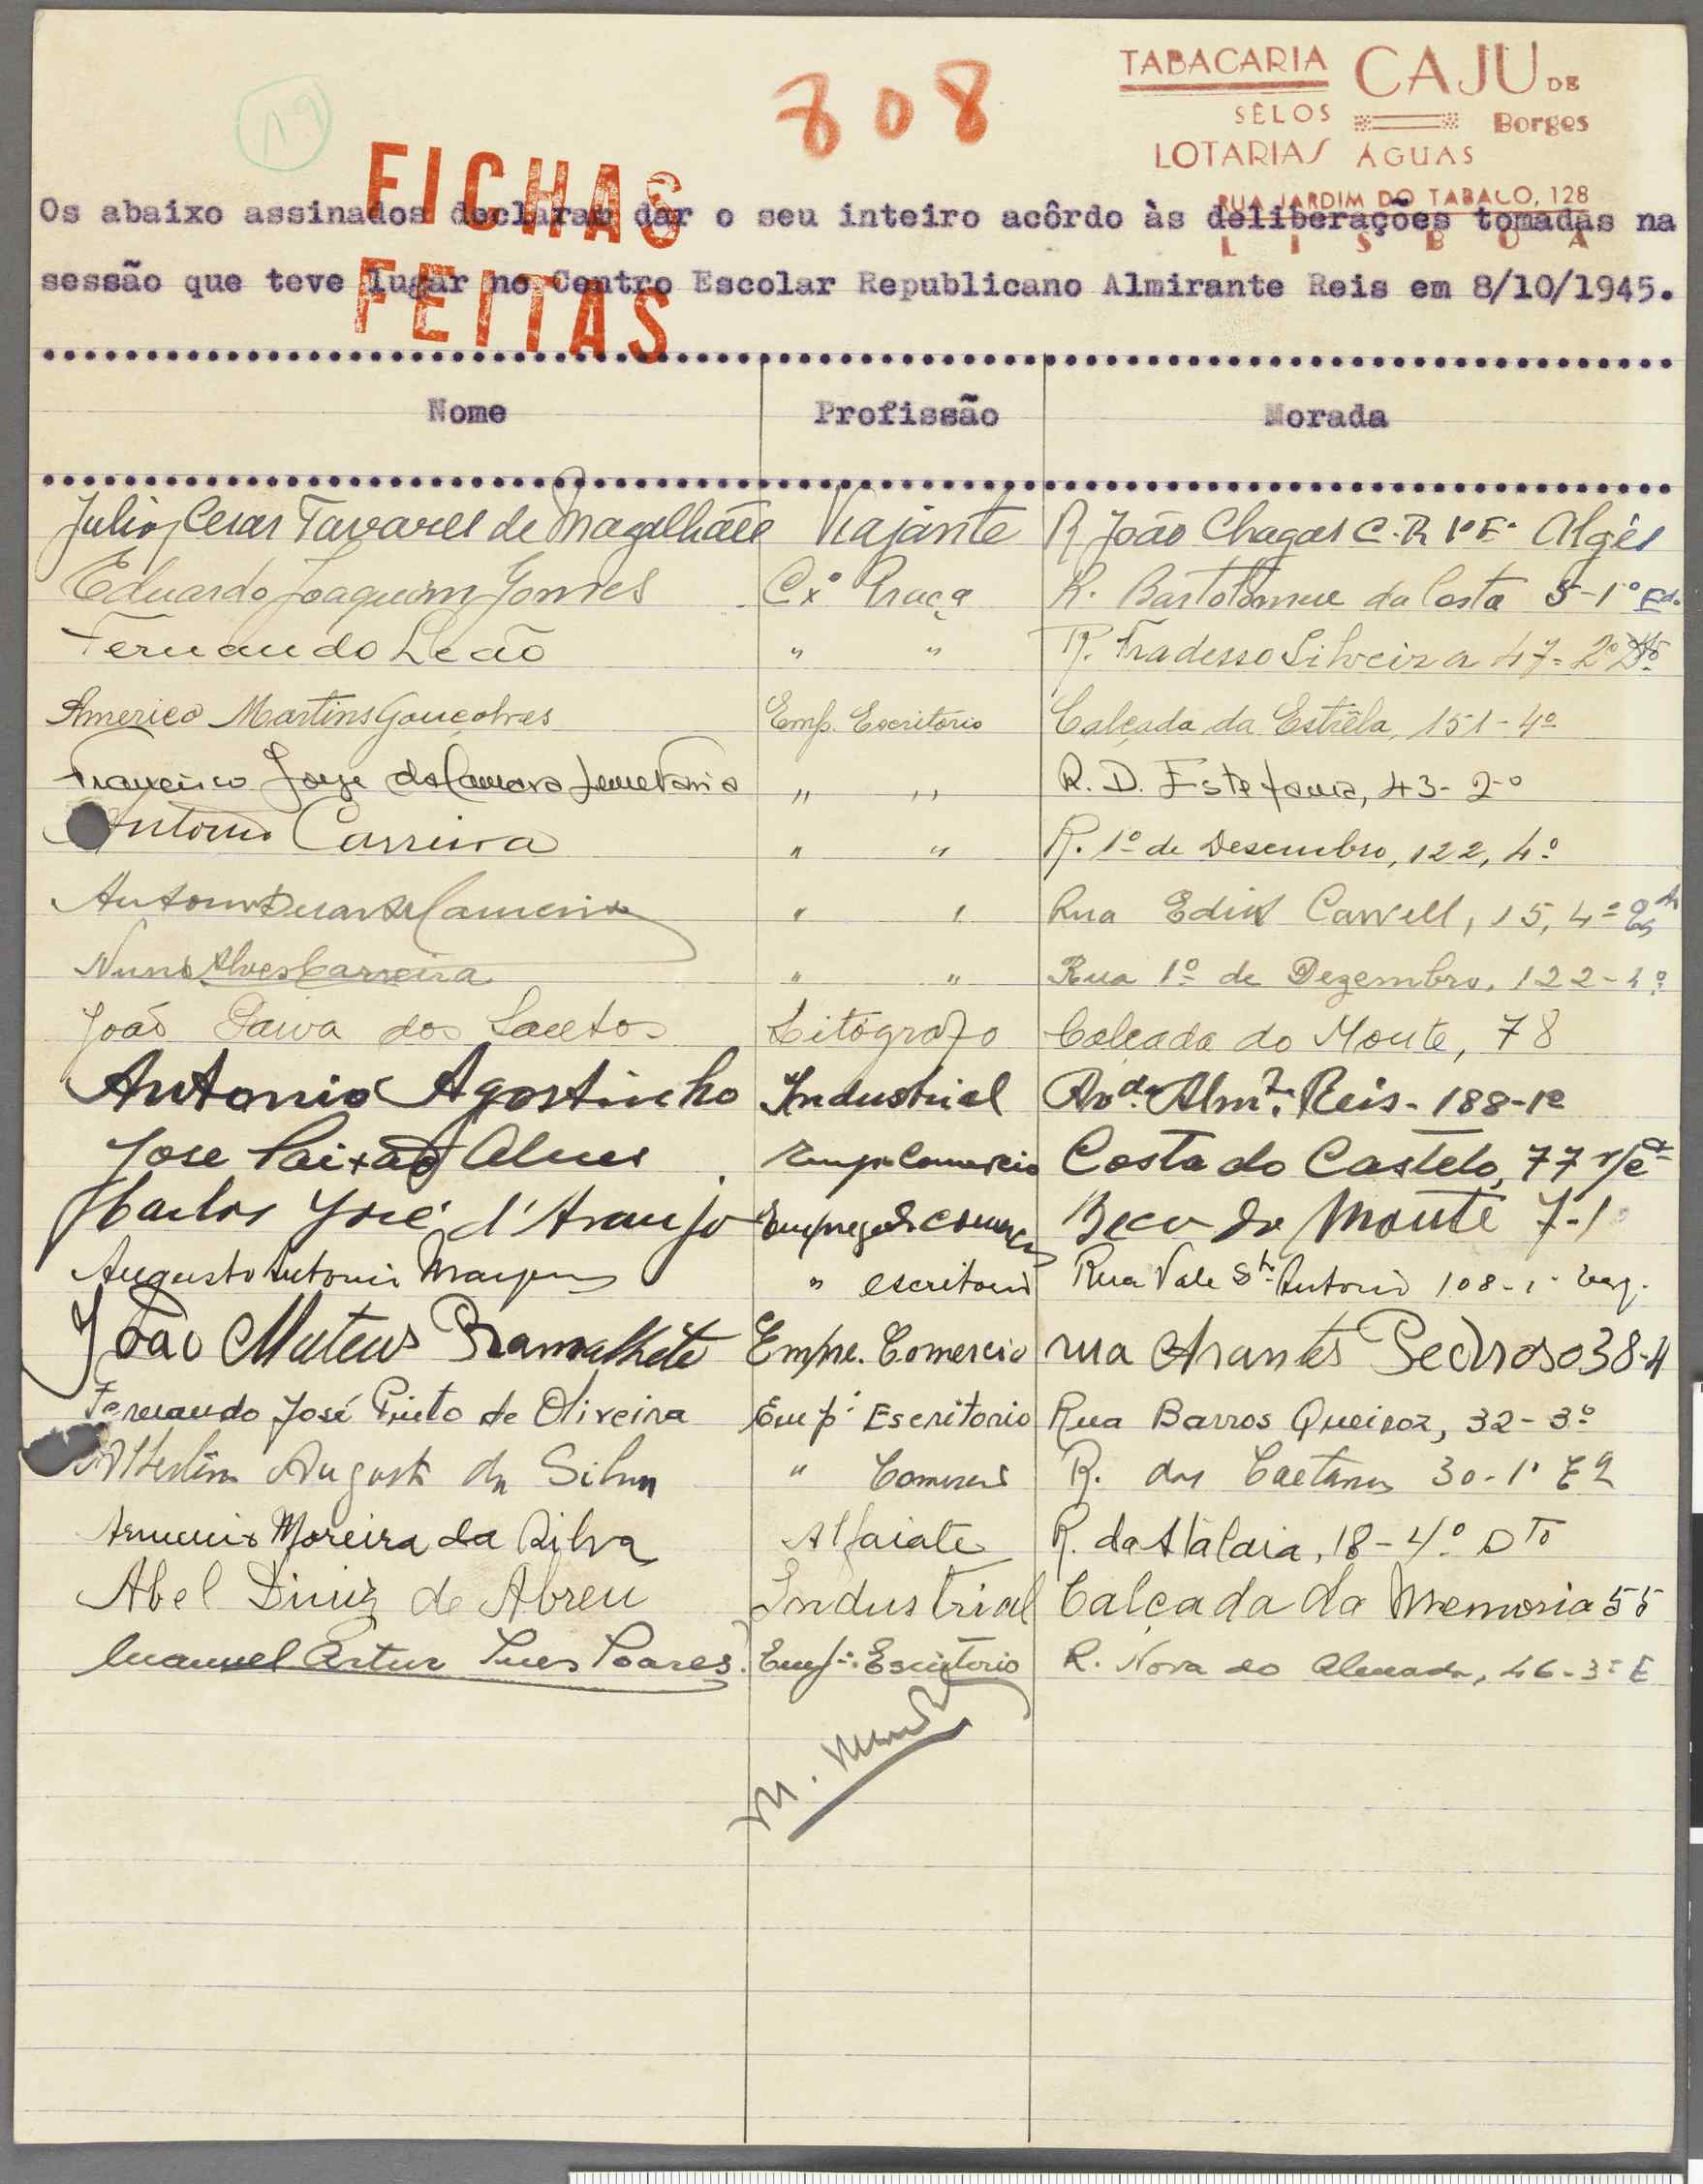 808
TABACARIA CAJU DE
SÊLOS Borges
LOTARIAS ÁGUAS
RUA JARDIM DO TABACO, 128
LISBOA
FICHAS
FEITAS
Os abaixo assinados declaram dar o seu inteiro acôrdo às deliberações tomadas na
sessão que teve lugar no Centro Escolar Republicano Almirante Reis em 8/10/1945.
Nome Profissão Morada
Julio Cesar Tavares de Magalhães Viajante R João Chagas C. R 1º E. Algés
Eduardo Joaquim Gomes Cxº Praça R. Bartolomeu da Costa 5-1º
Fernando Leão " " R. Fradesso Silveira 47-2º
Americo Martins Gonçalves Emp. Escritório Calçada da Estrêla, 151-4º
Francisco Jorge da Camara " " R. D. Estefania, 43-2º
Antonio Carreira " " R. 1º de Desembro, 122, 4º
Antonio " " Rua Edith Cavvell, 15, 4º
Nuno Alves Carreira " " Rua 1º de Dezembro, 122-4º
João Paiva dos Santos Litógrafo Calçada do Monte, 78
Antonio Agostinho Industrial Avda. Almte. Reis-188-1º
Jose Paixão Alves Emp. Comercio Costa do Castelo, 77 r/c
Carlos José d'Araujo Beco do Monte 7-1
Augusto Antonio " escritorio Rua Vale Stº Antonio 108-1-
João Mateus Ramalhete Empre. Comercio rua Arantes Pedroso 38-4
Fernando José Pinto de Oliveira Emp. Escritorio Rua Barros Queiroz, 32-3º
Augusto da Silva " Comercio R. dos Caetanos 30-1º
Arménio Moreira da Silva Alfaiate R. da Atalaia, 18-4º DTO
Abel Diniz de Abreu Industrial Calçada da Memoria 55
Manuel Artur Soares Emp. Escritorio R. Nova do Almada, 46-3º E